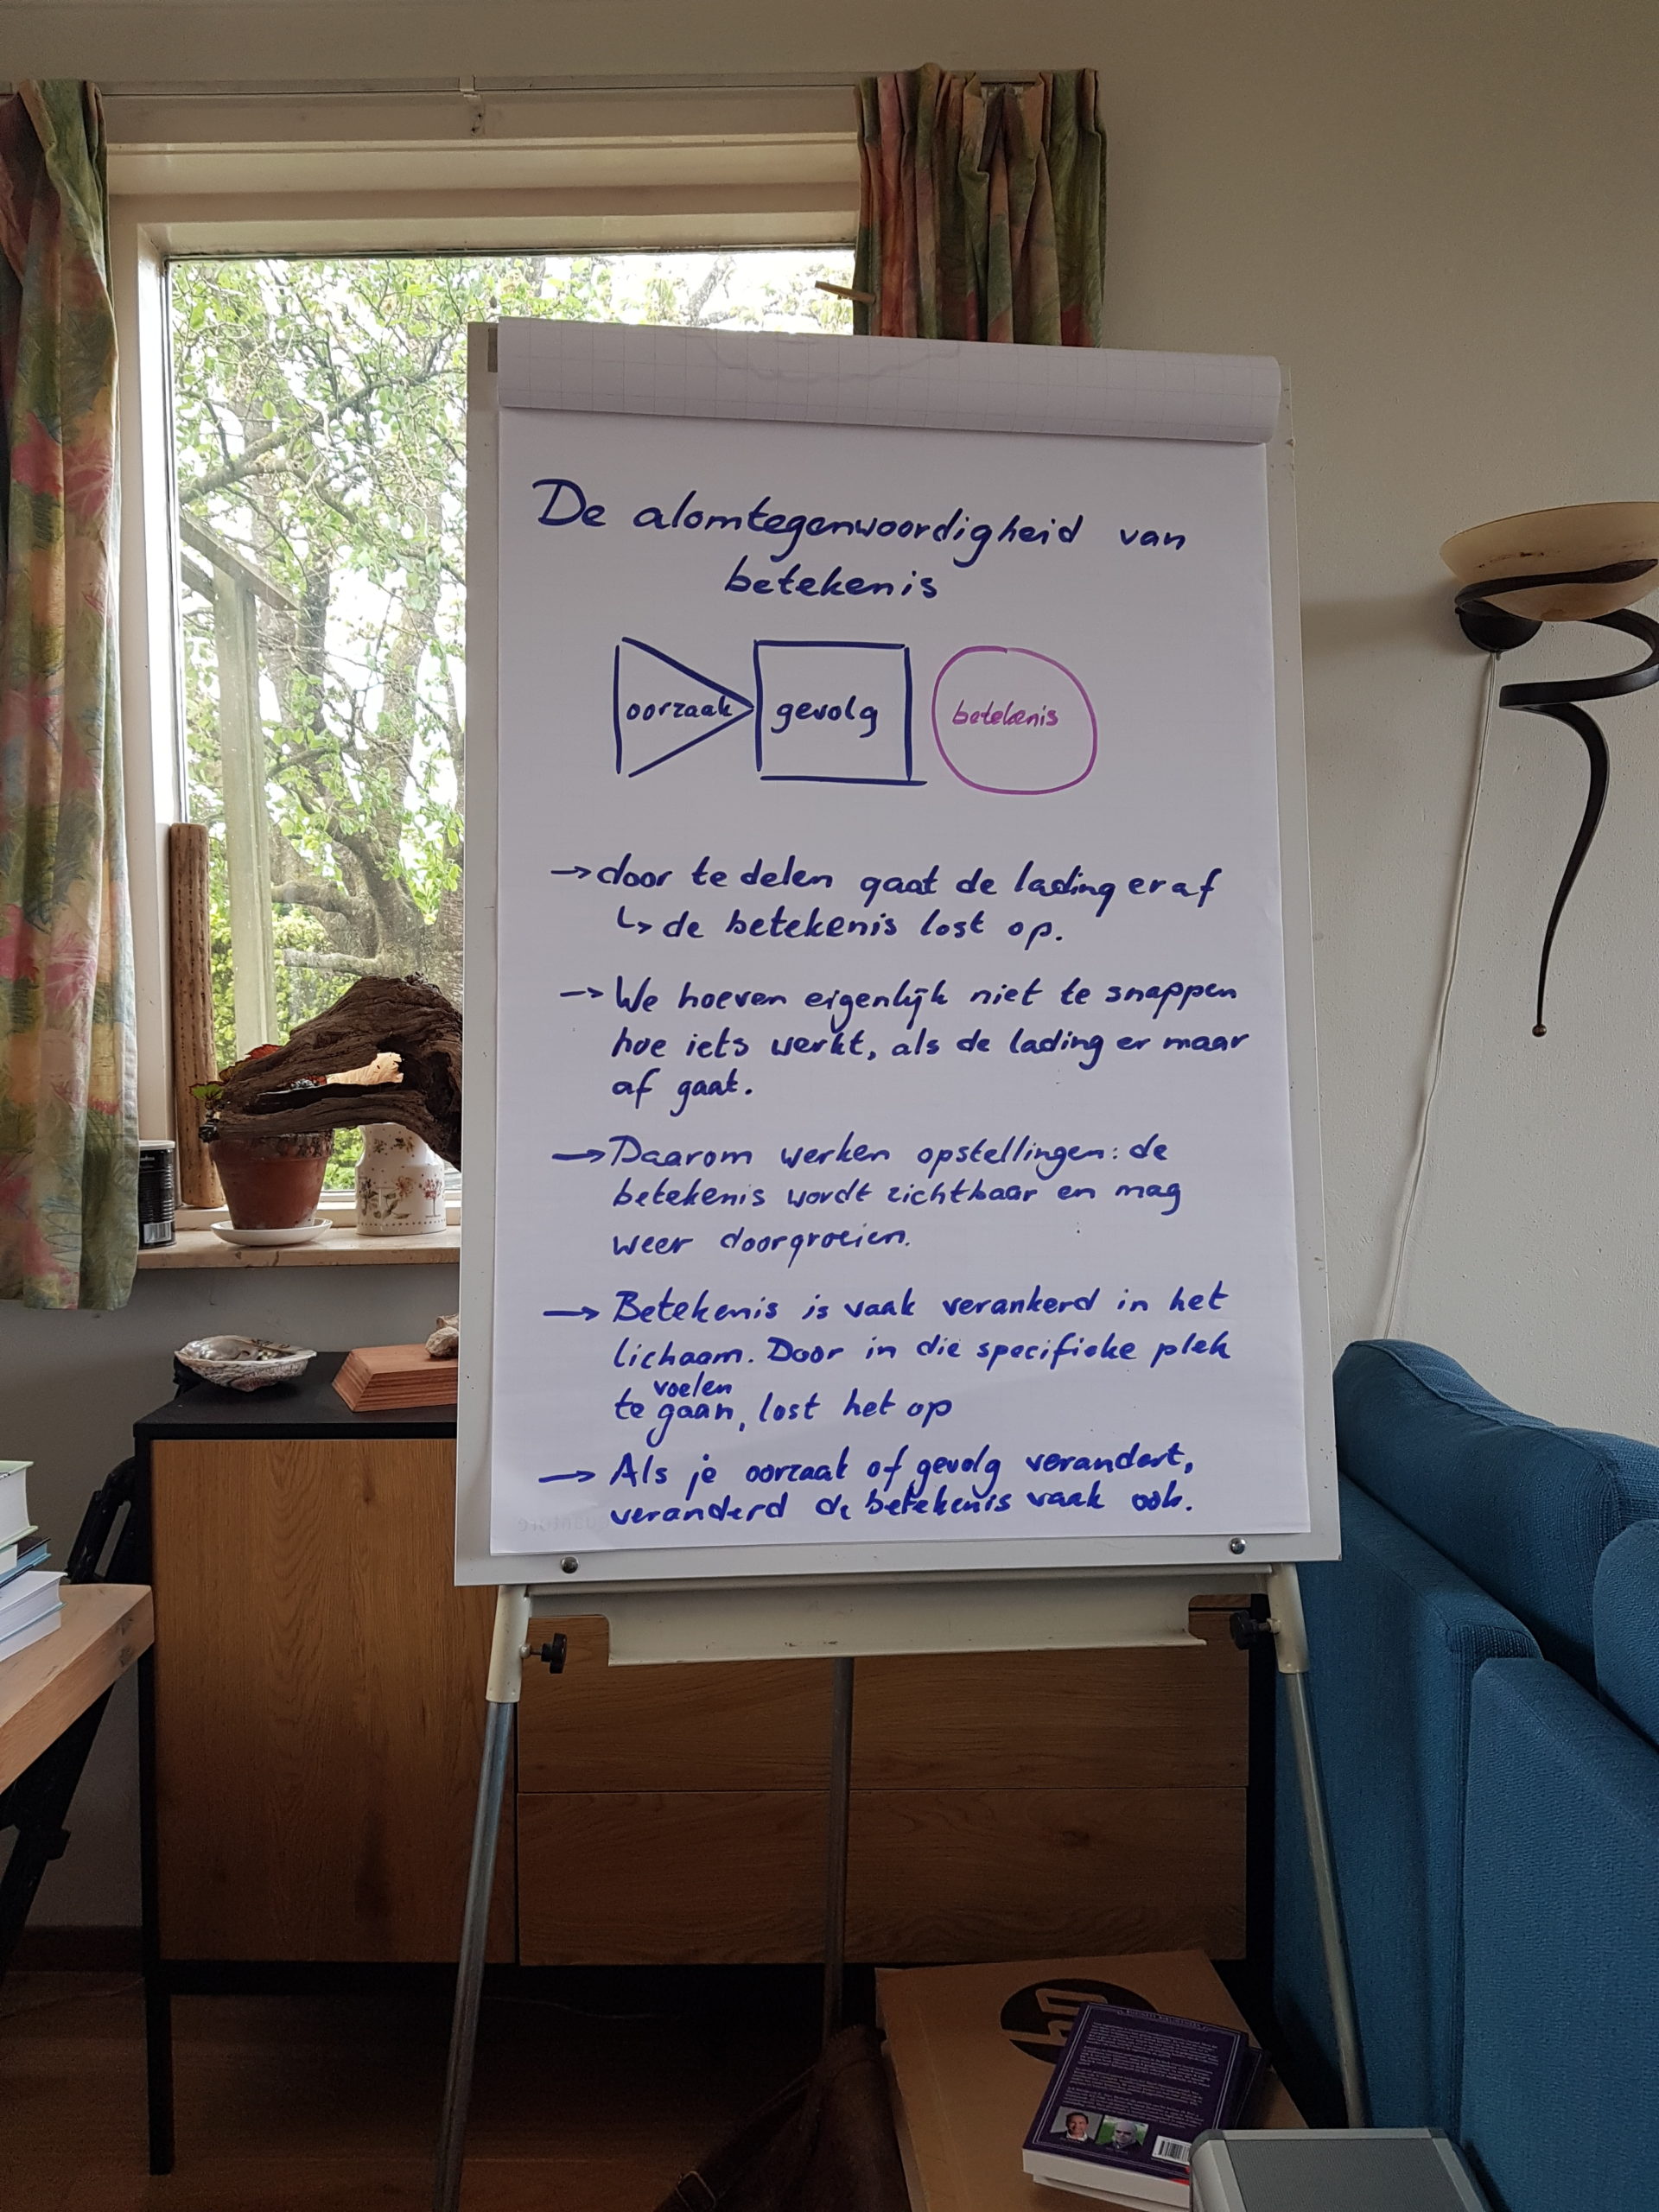 De alomtegenwoordigheid van
betekenis
oorzaak gevolg betekenis
→ door te delen gaat de lading eraf
↳ de betekenis lost op.
→ We hoeven eigenlijk niet te snappen
hoe iets werkt, als de lading er maar
af gaat.
→ Daarom werken opstellingen: de
betekenis wordt zichtbaar en mag
weer doorgroeien.
→ Betekenis is vaak verankerd in het
lichaam. Door in die specifieke plek
voelen
te gaan, lost het op
→ Als je oorzaak of gevolg verandert,
veranderd de betekenis vaak ook.
hp